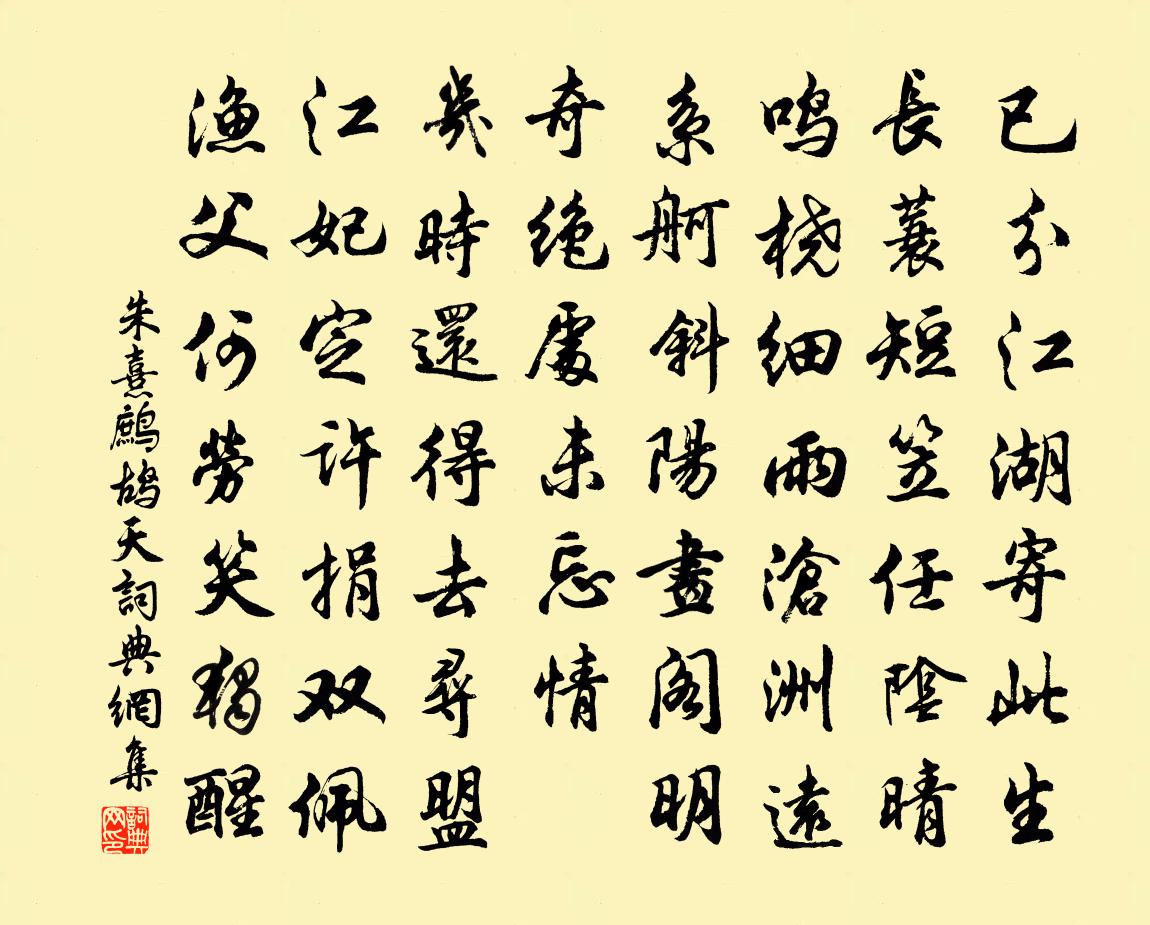 已分江湖寄此生
長蓑短笠任陰晴
鸣桡细雨滄洲遠
系舸斜陽畫阁明
奇绝處未忘情
幾時還得去尋盟
江妃定许捐双佩
渔父何勞笑獨醒
朱熹鷓鴣天詞典網集
詞典网印